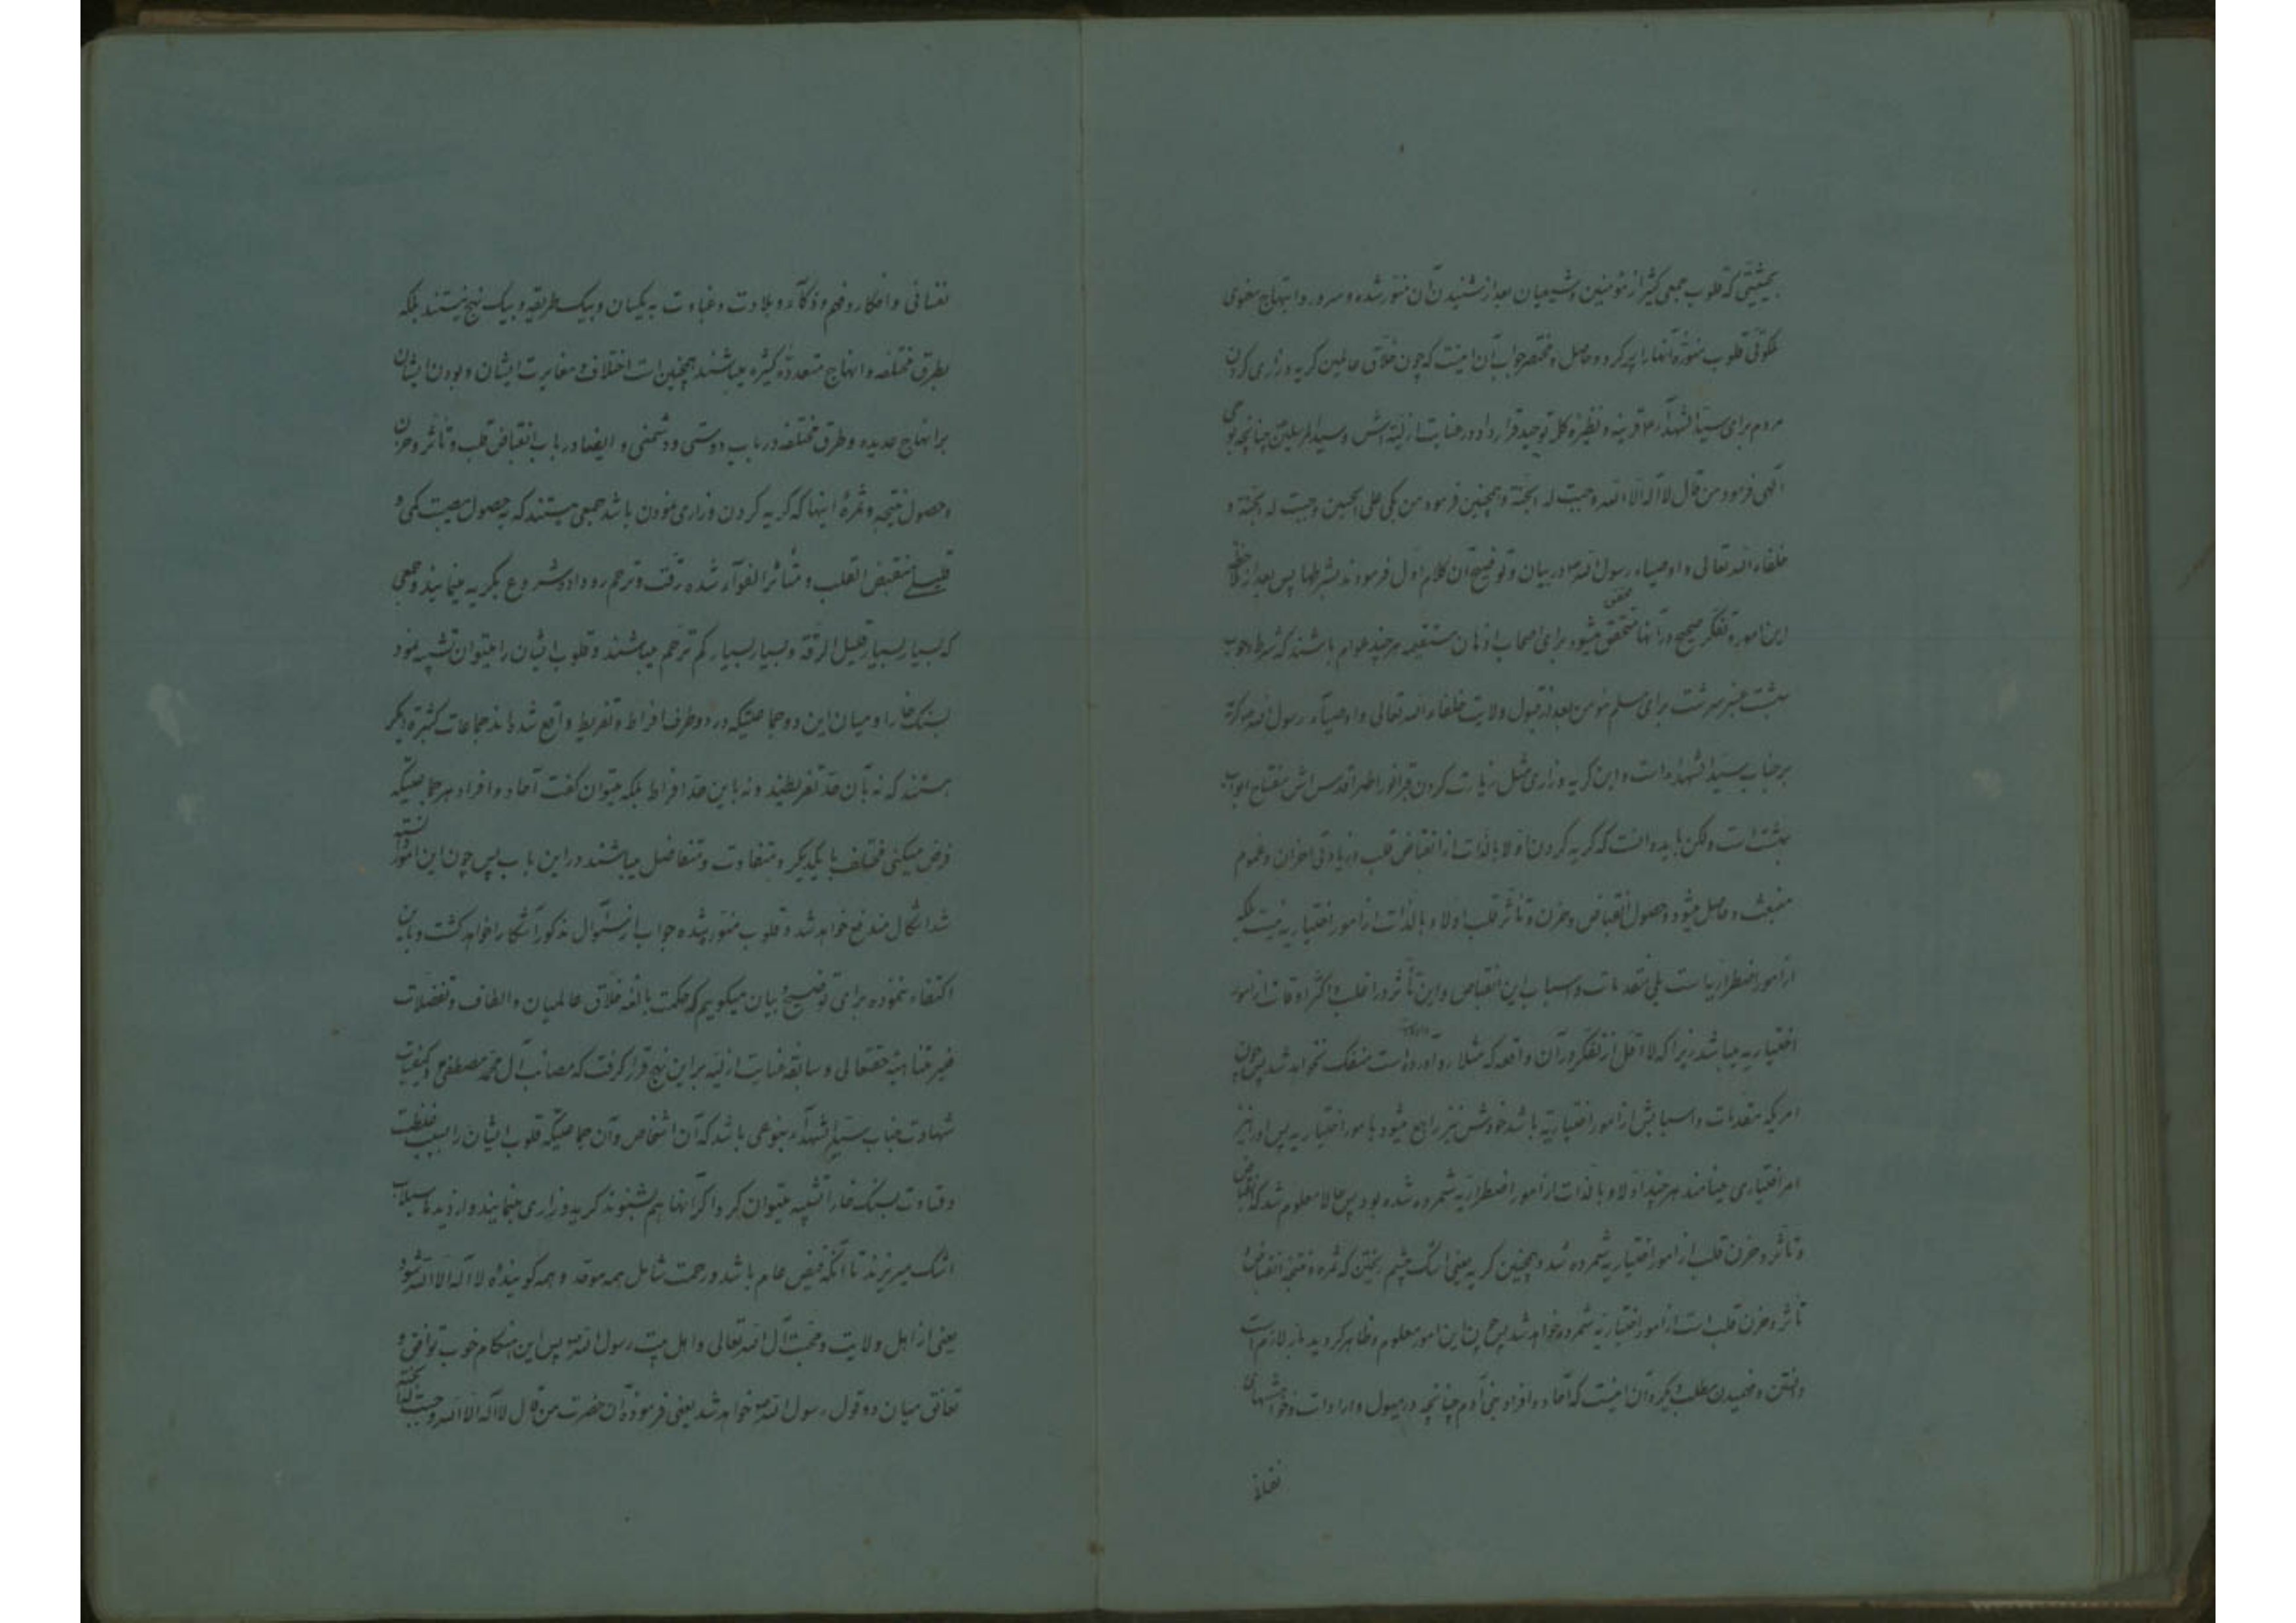 بحیثیتی که قلوب جمعی کثیر از مؤمنین و شیعیان بعد از شنیدن آن منور شده و سرور و ابتهاج معنوی
ملکوتی قلوب منوّره آنها را پر کرد و حاصل و مختصر جواب آن اینست که چون خلاق عالمین گریه و زاری کردن
مردم برای سید الشهدآء قرینه و نظیره کل توحید قرار داد و در عنایت ازلیه‌اش و سید المرسلین چنانچه بوحی
الهی فرمود من قال لا اله الا الله وجبت له الجنّة و همچنین فرمود من بکی علی الحسین وجبت له الجنّة و
خلفاء الله تعالی و اوصیاء رسول الله در بیان و توضیح آن کلام اول فرمودند بشرطها پس بعد از ملاحظه
این امور و تفکر صحیح در آنها متحقق میشود برای اصحاب اذهان مستقیمه هر چند عوام باشند که شرط وجوب
بهشت عنبر سرشت برای مسلم مؤمن بعد از قبول ولایت خلفاء الله تعالی و اوصیاء رسول الله گریه
بر جناب سید الشهداء است و این گریه و زاری مثل زیارت کردن قبر انور اطهر اقدس اش مفتاح ابواب
بهشت است ولکن باید دانست که گریه کردن اولا بالذات از انقباض قلب و زیادتی احزان و غموم
منبعث و حاصل میشود و حصول انقباض و حزن و تأثر قلب اولا و بالذات از امور اختیاریه نیست بلکه
از امور اضطراریه است بلی مقدمات و اسباب این انقباض و این تأثر در اغلب و اکثر اوقات از امور
اختیاریه میباشد زیرا که لا اقل از تفکر در آن واقعه که مثلا رو آورده است منفک نخواهد شد پس چون
امریکه مقدمات و اسبابش از امور اختیاریّه باشد خودش نیز راجع میشود بامور اختیاریه پس او را نیز
امر اختیاری مینامند هر چند اولا و بالذات از امور اضطراریّه شمرده شده بود پس حالا معلوم شد که انقباض
و تأثر و حزن قلب از امور اختیاریه شمرده شد و همچنین گریه یعنی اشک چشم ریختن که ثمره و نتیجه انقباض و
تأثر و حزن قلب است از امور اختیاریّه شمرده خواهد شد پس چون این امور معلوم و ظاهر گردید باز لازم است
دانستن و فهمیدن مطلب دیگر و آن اینست که آحاد و افراد بنی آدم چنانچه در میول و ارادات و خواهشهای
نفسانی
نفسانی و افکار و فهم و ذکآء و بلادت و غباوت به یکسان و بیک طریقه و بیک نهج نیستند بلکه
بطرق مختلفه و انهاج متعدده کثیره میباشند همچنین است اختلاف و مغایرت ایشان و بودن ایشان
بر انهاج عدیده و طرق مختلفه در باب دوستی و دشمنی و ایضا در باب انقباض قلب و تأثر و حزن
و حصول نتیجه و ثمرهٔ اینها که گریه کردن و زاری نمودن باشد جمعی هستند که بحصول مصیبت کمی و
قلیلی منقبض القلب و متأثر الفوآد شده رقّت و ترحم رو داده شروع بگریه مینمایند و جمعی
که بسیار بسیار قلیل الرقة و بسیار بسیار کم ترحم میباشند و قلوب ایشان را میتوان تشبیه نمود
بسنگ خارا و میان این دو جماعتیکه در دو طرف افراط و تفریط واقع شده‌اند جماعات کثیره دیگر
هستند که نه بآن حد تفریطند و نه باین حد افراط بلکه میتوان گفت آحاد و افراد هر جماعتیکه
فرض میکنی مختلف با یکدیگر و متفاوت و متفاضل میباشند در این باب پس چون این امور دانسته
شد اشکال مندفع خواهد شد و قلوب منور شده جواب از سئوال مذکور آشکارا خواهد گشت و باین
اکتفاء ننموده برای توضیح بیان میگویم که حکمت بالغه خلاق عالمیان و الطاف و تفضلات
غیر متناهیه حقتعالی و سابقه عنایت ازلیّه بر این نهج قرار گرفت که مصائب آل محمد مصطفی و کیفیت
شهادت جناب سید الشهدآء بنوعی باشد که آن اشخاص و آن جماعتیکه قلوب ایشان را بسبب غلظت
و قساوت بسنگ خارا تشبیه میتوان کرد اگر آنها هم بشنوند گریه و زاری مینمایند و از دیده‌ها سیلاب
اشک میریزند تا آنکه فیض عام باشد و رحمت شامل همه موحّد و همه گوینده لا اله الا الله شود
یعنی از اهل ولایت و محبت آل الله تعالی و اهل بیت رسول الله پس این هنگام خوب توافق و
تعانق میان دو قول رسول الله خواهد شد یعنی فرموده آن حضرت من قال لا اله الا الله وجبت له الجنّة